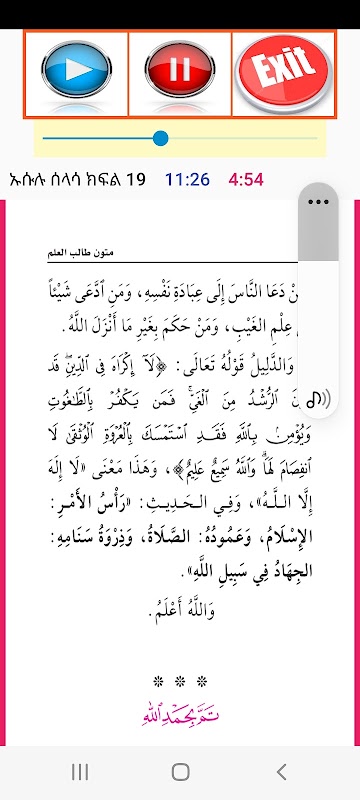 Exit
ኡሱሉ ሰላሳ ክፍል 19 11:26 4:54
متون طالب العلم
دَعَا النَّاسَ إِلَى عِبَادَةِ نَفْسِهِ، وَمَنِ ادَّعَى شَيْئاً
عِلْمِ الْغَيْبِ، وَمَنْ حَكَمَ بِغَيْرِ مَا أَنْزَلَ اللَّهُ.
وَالدَّلِيلُ قَوْلُهُ تَعَالَى: ﴿لَآ إِكْرَاهَ فِي الدِّينِۖ قَد
الرُّشْدُ مِنَ الْغَيِّۚ فَمَن يَكْفُرْ بِالطَّاغُوتِ
وَيُؤْمِنۢ بِاللَّهِ فَقَدِ اسْتَمْسَكَ بِالْعُرْوَةِ الْوُثْقَىٰ لَا
انفِصَامَ لَهَاۗ وَاللَّهُ سَمِيعٌ عَلِيمٌ﴾، وَهَذَا مَعْنَى «لَا إِلَهَ
إِلَّا اللَّهُ»، وَفِي الْحَدِيثِ: «رَأْسُ الأَمْرِ:
الإِسْلَامُ، وَعَمُودُهُ: الصَّلَاةُ، وَذِرْوَةُ سَنَامِهِ:
الجِهَادُ فِي سَبِيلِ اللَّهِ».
وَاللَّهُ أَعْلَمُ.
تَمَّ بِحَمْدِ اللهِ